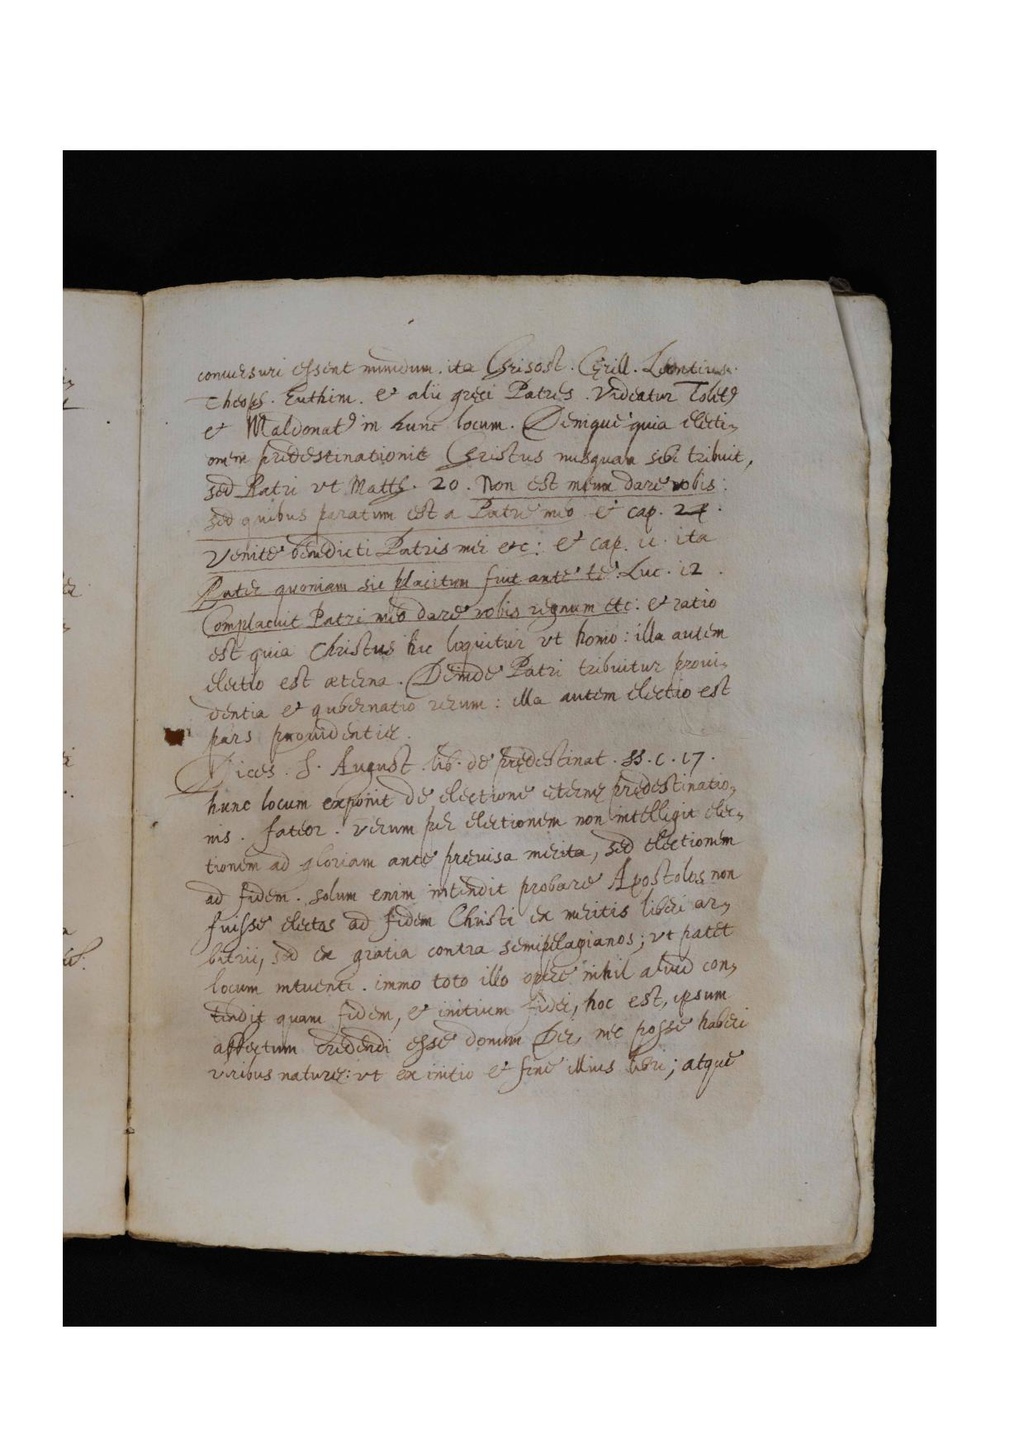 conuersuri essent mundum. ita Chrisost. Cyrill. Leontius.
Theoph. Euthim. et alii greci Patres. Videatur Tolet9
et Maldonat9 in hunc locum. Denique quia electi-
onem predestinationis Christus nusquam sibi tribuit,
sed Patri vt Matth. 20. Non est meum dare vobis:
sed quibus paratum est a Patre meo et cap. 24.
Venite benedicti Patris mei etc: et cap. ii. ita
Pater quoniam sic placitum fuit ante te. Luc. 12.
Complacuit Patri meo dare vobis regnum etc: et ratio
est quia Christus hic loquitur vt homo: illa autem
electio est æterna. Deinde Patri tribuitur proui-
dentia et gubernatio rerum: illa autem electio est
pars prouidentiæ.
Dices. S. August. lib. de predestinat. SS. c. 17.
hunc locum exponit de electione eterne predestinatio-
nis. fateor. verum per electionem non intelligit elec-
tionem ad gloriam ante preuisa merita, sed electionem
ad fidem. solum enim intendit probare Apostolos non
fuisse electos ad fidem Christi ex meritis liberi ar-
bitrii, sed ex gratia contra semipelagianos; vt patet
locum intuenti. immo toto illo opere nihil aliud con-
tendit quam fidem, et initium fidei, hoc est, ipsum
affectum credendi esse donum Dei, nec posse haberi
viribus nature: vt ex initio et fine illius libri; atque